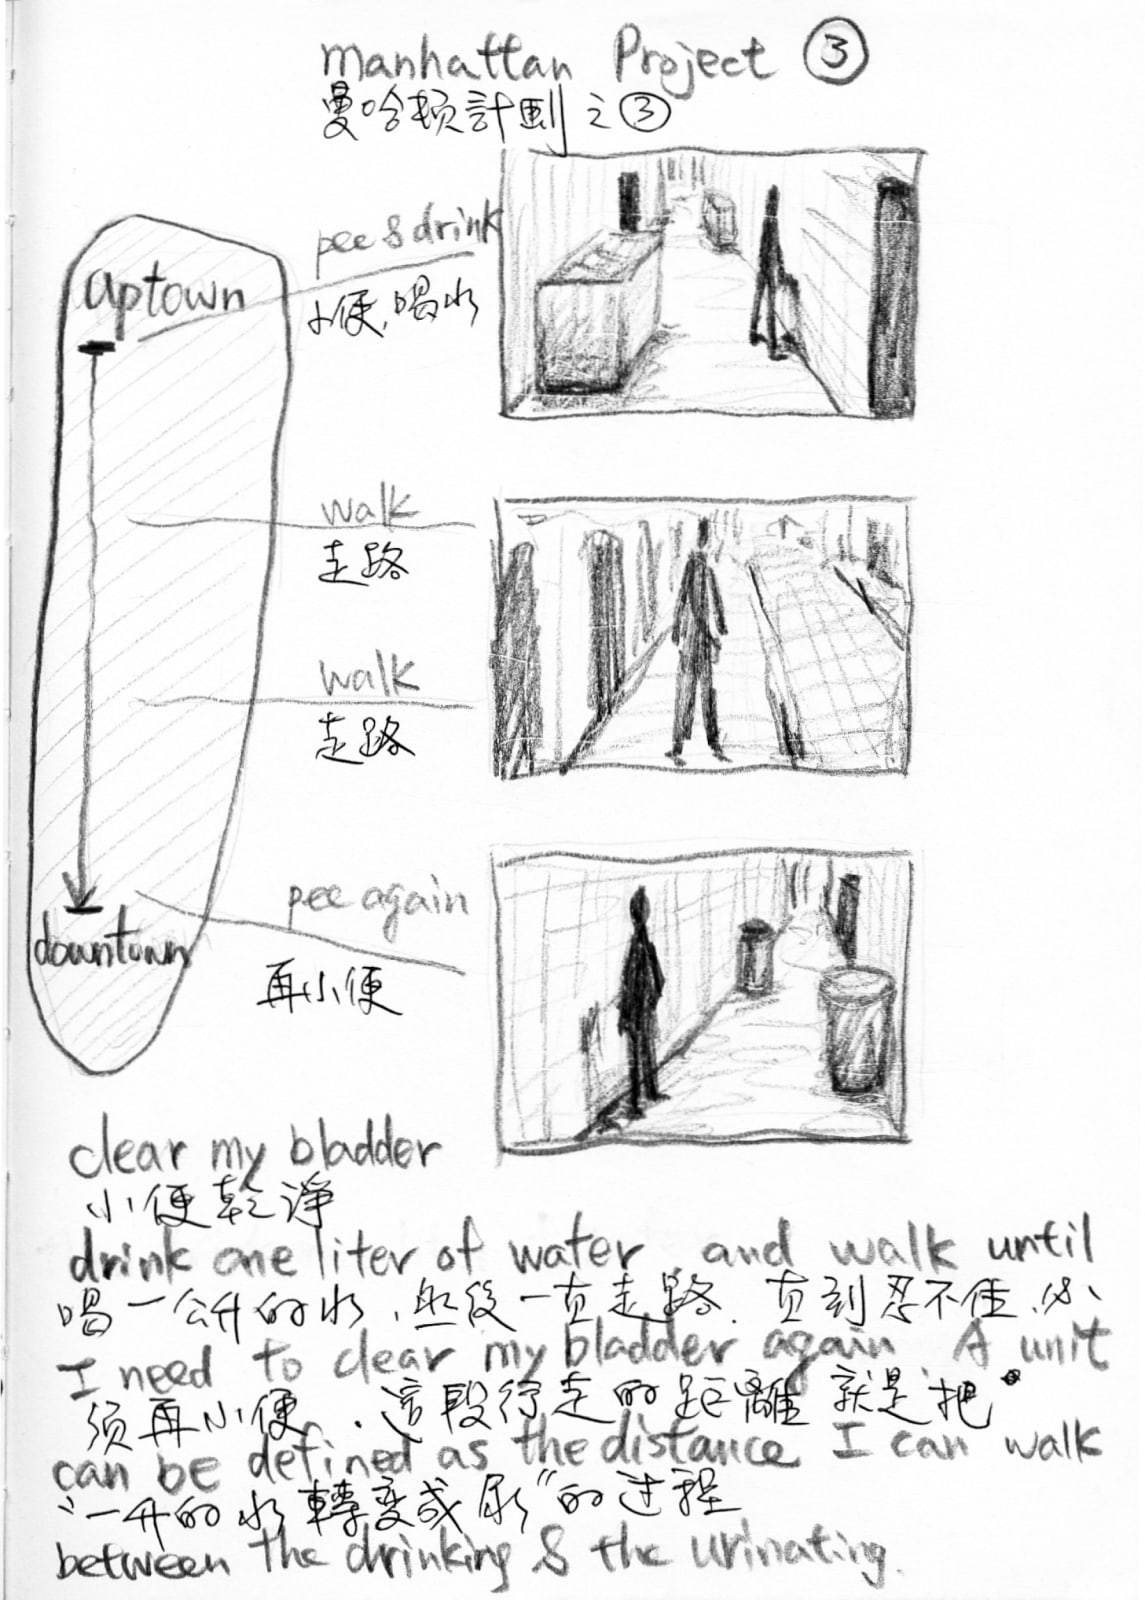 manhattan Project ③
曼哈頓計劃之③
uptown
pee & drink
小便,喝水
walk
走路
walk
走路
pee again
再小便
downtown
clear my bladder
小便乾淨
drink one liter of water and walk until
喝一公升的水,然後一直走路.直到忍不住,必
I need to clear my bladder again A unit
須再小便.這段行走的距離就是把
can be defined as the distance I can walk
"一升的水轉变成尿"的过程
between the drinking & the urinating.